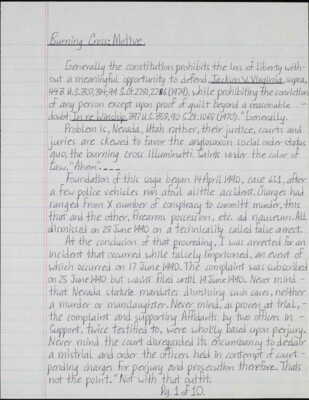 Burning Cross: Motive
Generally the constitution prohibits the loss of liberty with-
out a meaningful opportunity to defend, Jackson V. Virginia, supra,
443 U.S. 307, 314, 99 S.Ct 2781, 2786 (1979), while prohibiting the conviction
of any person except upon proof of guilt beyond a reasonable -
doubt. In re Winship, 397 U.S. 358, 90 S.Ct. 1068 (1970). "Generally.
Problem is, Nevada, Utah rather, their justice, courts and
juries are skewed to favor the anglosaxon social order status
quo, the burning cross illuminatti. Saints under the color of
Law. "Ahem".----
Foundation of this saga began 14 April 1990, case 651, after
a few police vehicles run afoul alittle accident. Charges had
ranged from X number of conspiracy to committ murder, this
that and the other, firearms poscesion, etc. ad nauseum. All
dismised on 28 June 1990 on a technically called false arrest.
At the conclusion of that proceeding, I was arrested for an
incident that occurred while falsely imprisoned, an event of
which occurred on 17 June 1990. The complaint was subscribed
on 25 June 1990 but wasnt filed until 19 June 1990. Never mind -
that Nevada statute mandates dismising such cases, neither
a murder or manslaughter. Never mind, as proven at trial,
the complaint and supporting Affidavits by two officers in -
support, twice testified to, were wholly based upon perjury.
Never mind the court disregarded its encumbancy to declare
a mistrial and order the officers held in contempt of court -
pending charges for perjury and prosecution therefore. Thats
not the point." Not with that outfit.
Pg. 1 of 10.